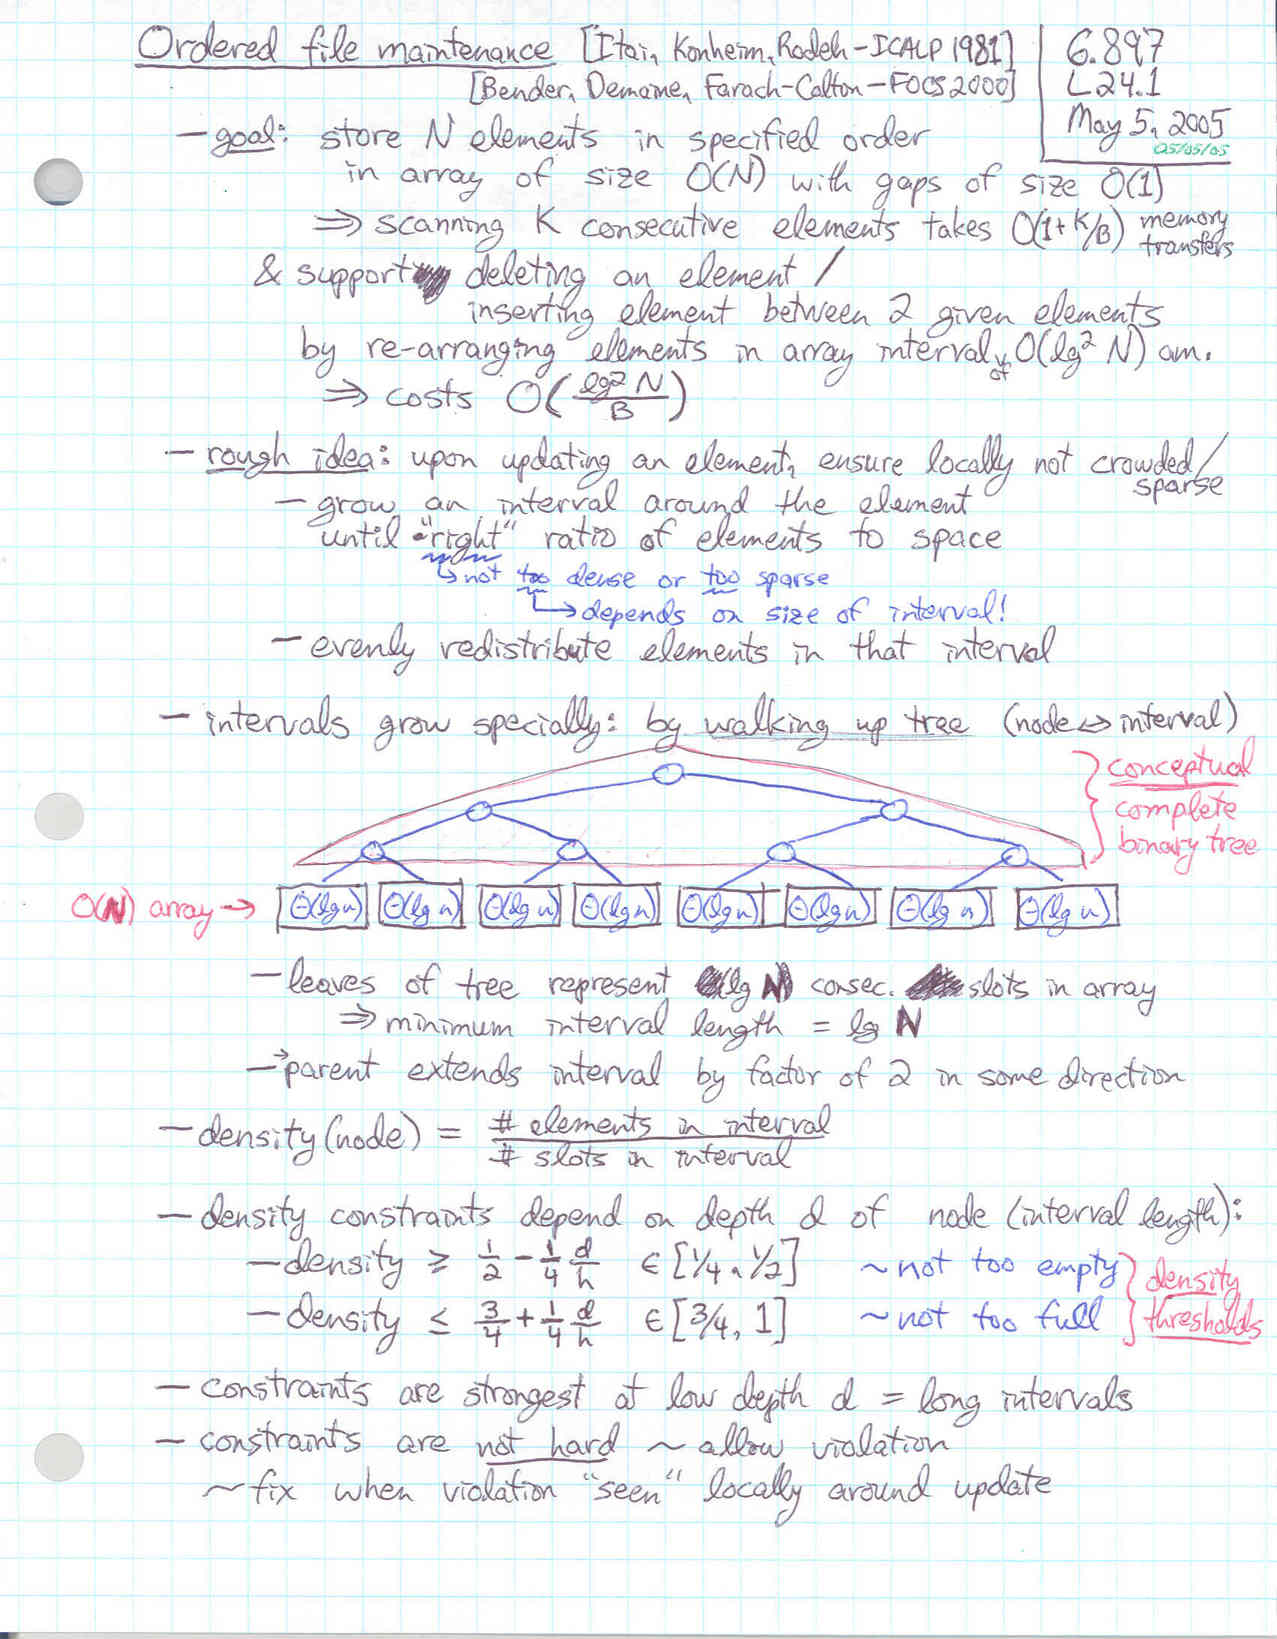 Ordered file maintenance [Itai, Konheim, Rodeh – ICALP 1981]
[Bender, Demaine, Farach-Colton – FOCS 2000]
6.897
L24.1
May 5, 2005
05/05/05
– goal: store N elements in specified order
in array of size O(N) with gaps of size O(1)
⇒ scanning K consecutive elements takes O(1+K/B) memory transfers
& support deleting an element /
inserting element between 2 given elements
by re-arranging elements in array interval of O(lg² N) am.
⇒ costs O(lg² N / B)
– rough idea: upon updating an element, ensure locally not crowded/
sparse
– grow an interval around the element
until "right" ratio of elements to space
↳ not too dense or too sparse
↳ depends on size of interval!
– evenly redistribute elements in that interval
– intervals grow specially: by walking up tree (node ↔ interval)
conceptual
complete
binary tree
O(N) array → Θ(lg n) Θ(lg n) Θ(lg n) Θ(lg n) Θ(lg n) Θ(lg n) Θ(lg n) Θ(lg n)
– leaves of tree represent lg N consec. slots in array
⇒ minimum interval length = lg N
→ parent extends interval by factor of 2 in some direction
– density(node) = # elements in interval / # slots in interval
– density constraints depend on depth d of node (interval length):
– density ≥ 1/2 – 1/4 d/h ∈ [1/4, 1/2] ~ not too empty
– density ≤ 3/4 + 1/4 d/h ∈ [3/4, 1] ~ not too full
density
thresholds
– constraints are strongest at low depth d = long intervals
– constraints are not hard ~ allow violation
~ fix when violation "seen" locally around update